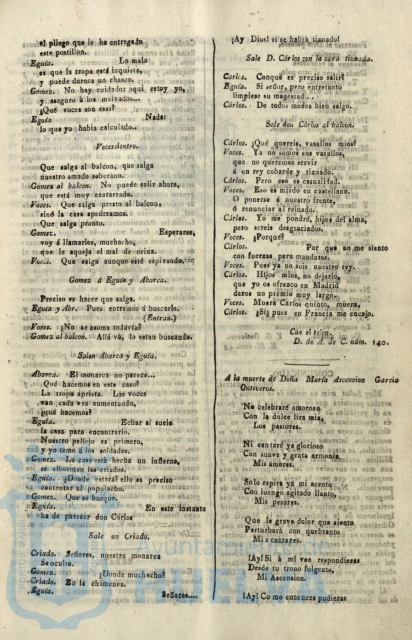 el pliego que le ha entregado
este postillon.
Eguía. Lo malo
es que la tropa está inquieta,
y puede darnos un chasco.
Gomez. No hay cuidado: aqui estoy yo,
y aseguro á los malvados...
¿Qué voces son esas?
Eguía Nada:
lo que yo habia calculado..
Voces dentro.
Que salga al balcon, que salga
nuestro amado soberano.
Gomez al balcon. No puede salir ahora,
que está muy acatarrado.
Voces. Que salga presto al balcon,
sinó la casa apedreamos.
Que salga pronto.
Gomez. Esperarse,
voy á llamarlos, muchacho,
que le aqueja el mal de orina.
Voces. Que salga aunque esté espirando,
Gomez á Eguía y Abarca.
Preciso es hacer que salga.
Eguía y Abr. Pues entremos á buscarlo.
(Entran.)
Voces. ¿No se asoma todavía?
Gomez al balcon. Allá vá, lo estan buscando.
Salen Abarca y Eguía.
Abarca. El monarca no parece...
Qué hacemos en este caso?
La tropa aprieta. Las voces
van cada vez aumentando,
¿qué hacemos?
Eguía. Echar al suelo
la casa para encontrarlo.
Nuestro pellejo es primero,
y yo temo á los soldados.
Gomez. La casa está hecha un infierno,
se alborotan los criados.
Eguía. ¿Donde estará? ello es preciso
contentar al populacho.
Gomez. Que se busque.
Eguía. En este instante
ha de parecer don Cárlos
Sale un Criado.
Criado. Señores, nuestro monarca
Se oculto.
Gomez. ¿Donde muchacho?
Criado. En la chimenea.
Eguía. Señores....
¡Ay Dios! si se habrá tiznado!
Sale D. Cárlos con la cara tiznada.
Carlos. Conqué es preciso salir?
Eguía. Si señor, pero entretanto
limpiese su magestad..
Cárlos. De todos modos bien salgo.
Sale don Cárlos al balcon.
Cárlos. ¿Qué quereis, vasallos mios?
Voces. Ya no somos sus vasallos,
que no queremos servir
á un rey cobarde y tiznado.
Cárlos. Pero eso es casualidad.
Voces. Eso es mirdo en castellano.
O poneros á nuestro frente,
ó renunciar al reinado.
Cárlos. Yo me pondré, hijos del alma,
pero sereis desgraciados.
Voces. ¿Porque?
Cárlos. Por que no me siento
con fuerzas para mandaros.
Voces. Pues ya no sois nuestro rey.
Cárlos. Hijos mios, no dejarlo,
que yo os ofrezco en Madrid
daros un premio muy largo..
Voces. Muera Carlos quinto, muera,
Cárlos. ¿Si? pues en Francia me encajo.
Cae el telon.
D. de A. de C. núm. 140.
A la muerte de Doña Maria Ascencion Garcia
Ontiveros.
No celebraré amoroso
Con la dulce lira mia,
Los pastores.
Ni cantaré ya glorioso
Con suave y grata armonía
Mis amores.
Solo espira ya mi acento
Con luengo agitado llanto,
Mis pesares.
Que le grave dolor que siento
Perturbará con quebranto
Mis cantares.
¡Ay! Si á mi voz respondieras
Desde tu trono fulgente,
Mi Ascension.
¡Ay! Como entonces pudieras